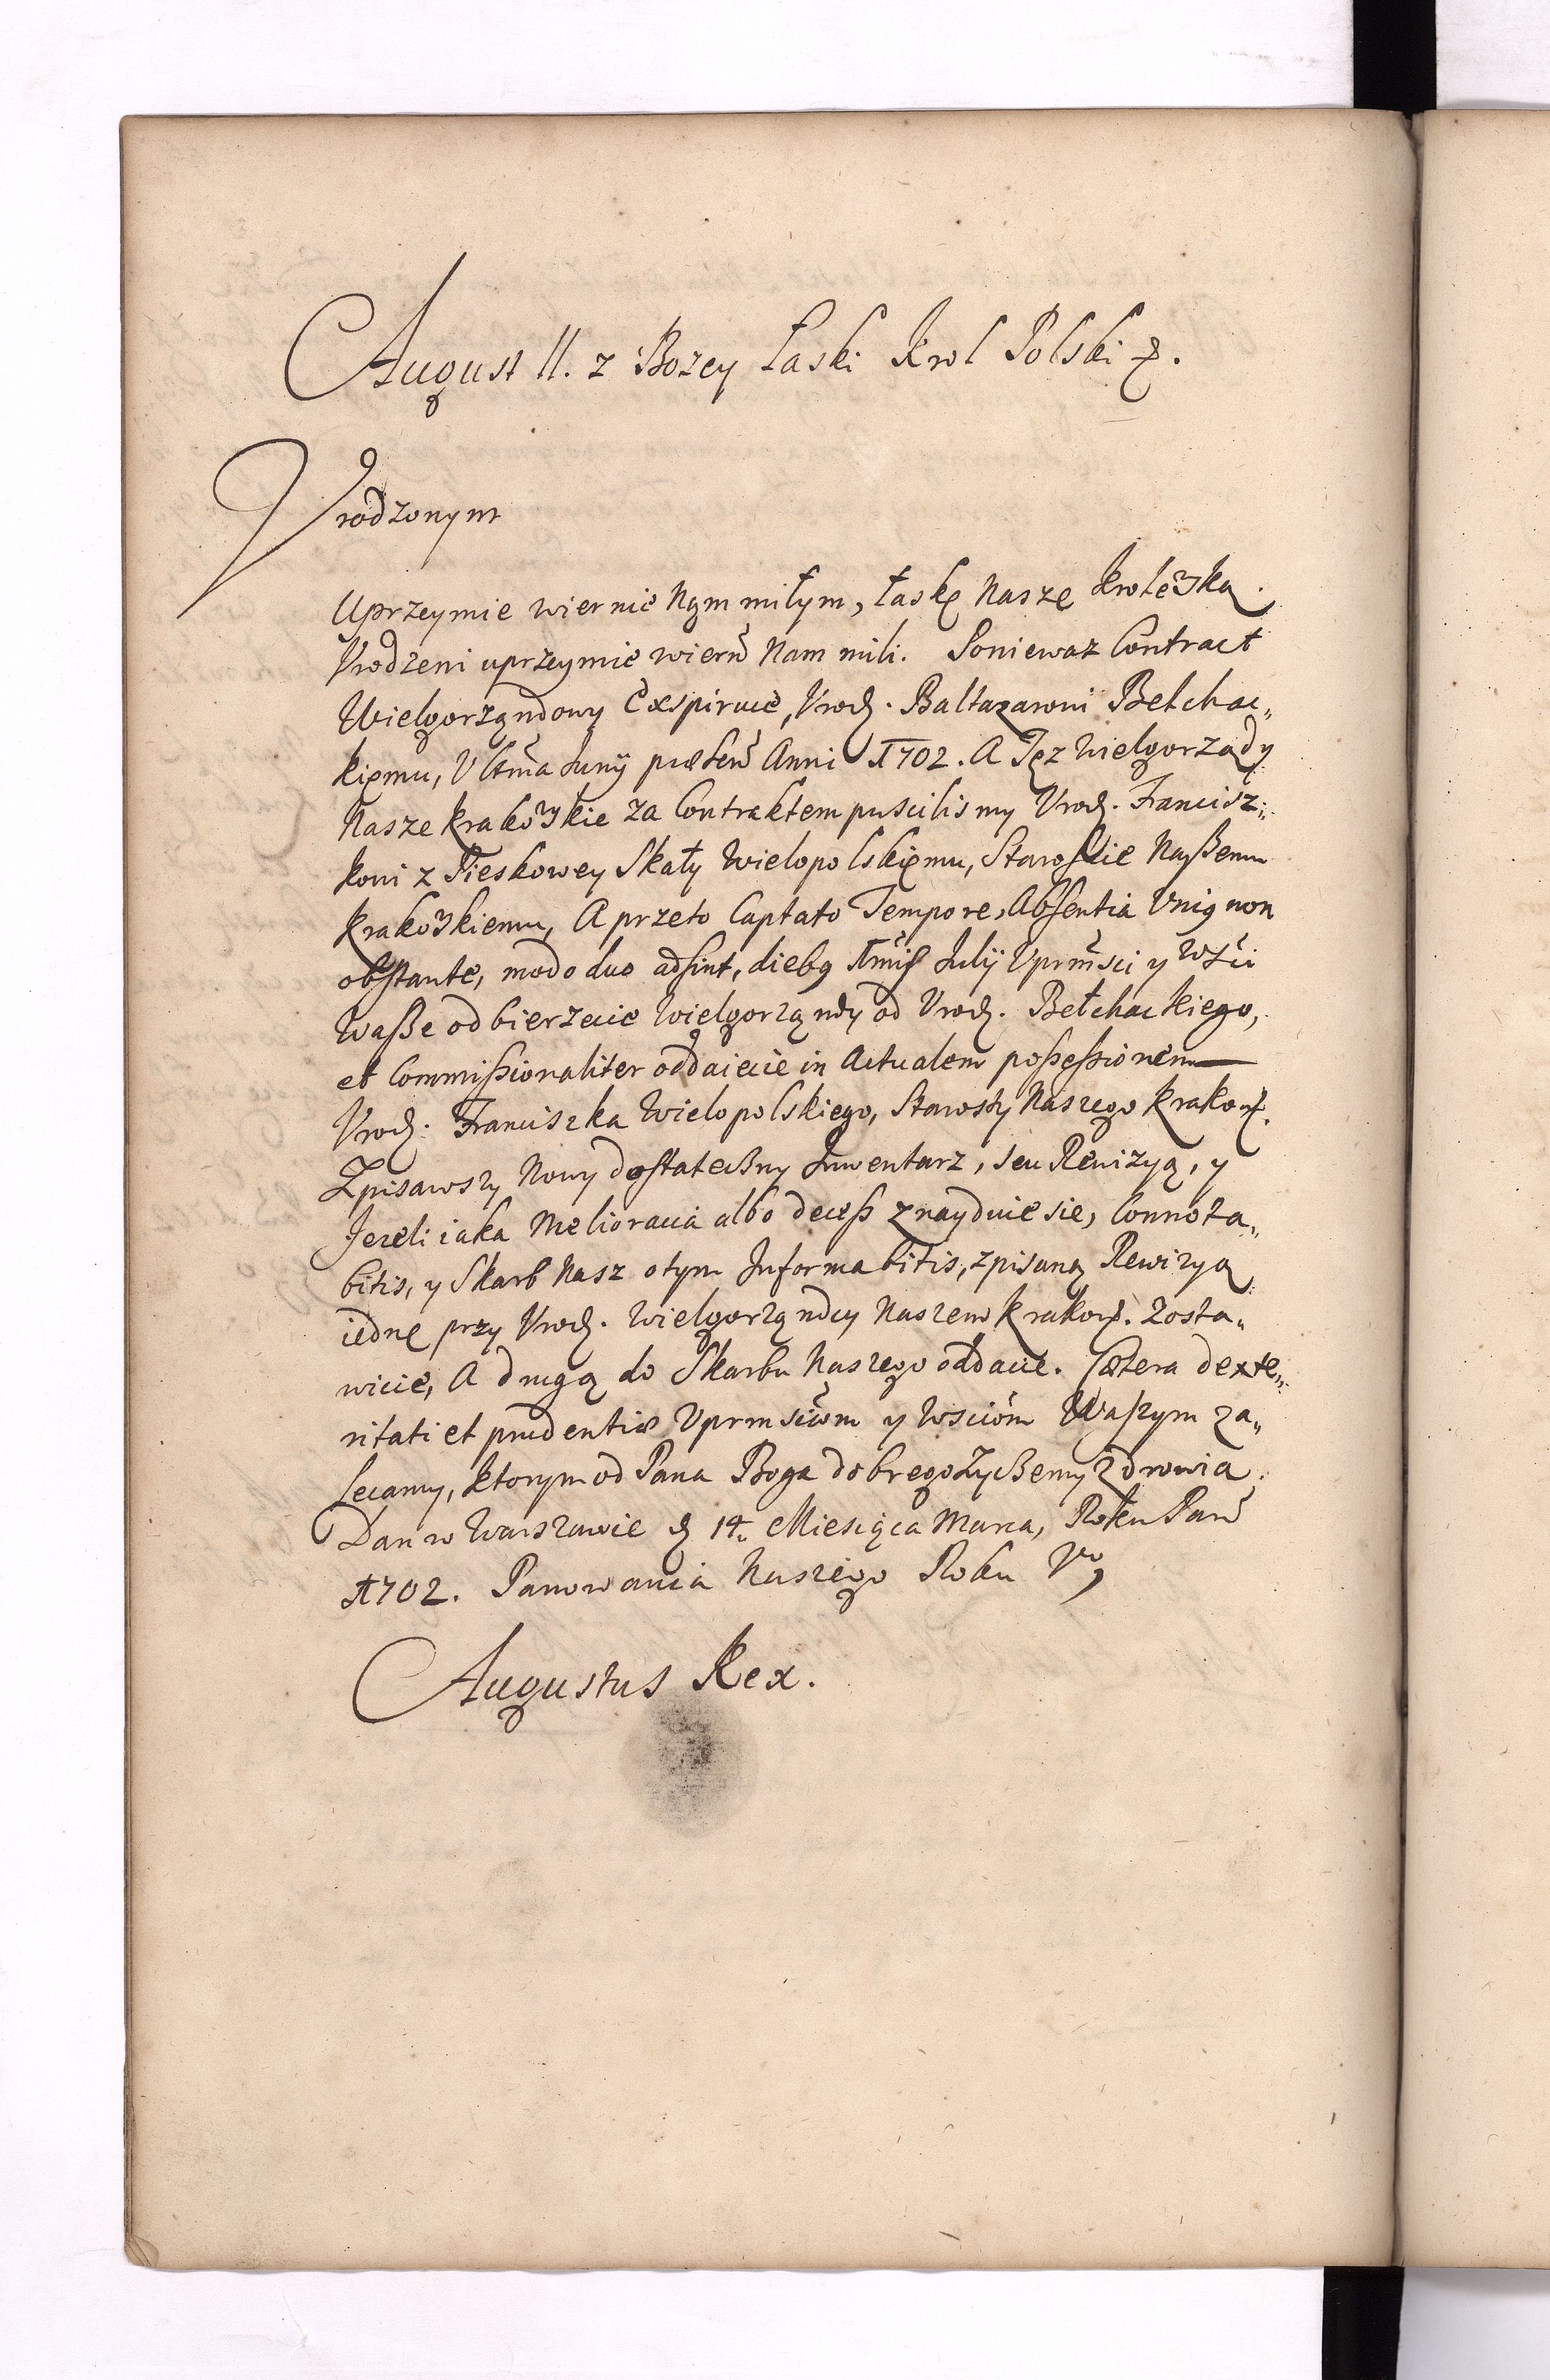 August II. z Bozey Łaski Krol Polski &.
Vrodzonym
Uprzeymie wiernie Nąm miłym, łaskę Naszę Krolewską.
Vrodzeni uprzeymie wiern Nam mili. Poniewaz Contract
Wielgorząndowy Exspiruie, Vrodz. Baltazarowi Bełchac„
kiemu, Vltima Junij præsen Anni 1702. A Tęz Wielgorządy
Nasze Krakowskie za Contraktem puscilismy Vrodz. Francisz„
kowi z Pieskowey Skały Wielopolskięmu, Staroscie Naßemu
Krakowskiemu, A przeto Captato Tempore, Absentia Vniq non
obstante, modo duo adsint, diebq Julij Vprmsci y Wsci
Waße odbierzecie Wielgorząndy od Vrodz. Bełchackiego,
et Commissionaliter oddaiecie in Actualem possessionem
Vrodz. Franciszka Wielopolskiego, Starosty Naszego Krakow.
Zpisawszy Nowy dostateczny Inwentarz, seu Rewizyą, y
Jezeli iaka Melioracia albo decess znayduie sie, Connota„
bitis, y Skarb Nasz otym Informabitis, zpisaną Rewizyą
iednę przy Vrodz. Wielgorząndcy Naszem Krakow. Zosta„
wicie, A drugą do Skarbu Naszego oddacie. Cætera dexte„
ritati et prudentiæ Vprmsciom y Wsciom Waszym za„
lecamy, ktorym od Pana Boga dobrego Zyczemy Zdrowia.
Dan w Warszawie d. 14. Miesiąca Marca, Roku Pan
1702. Panowania Naszego Roku V
Augustus Rex.